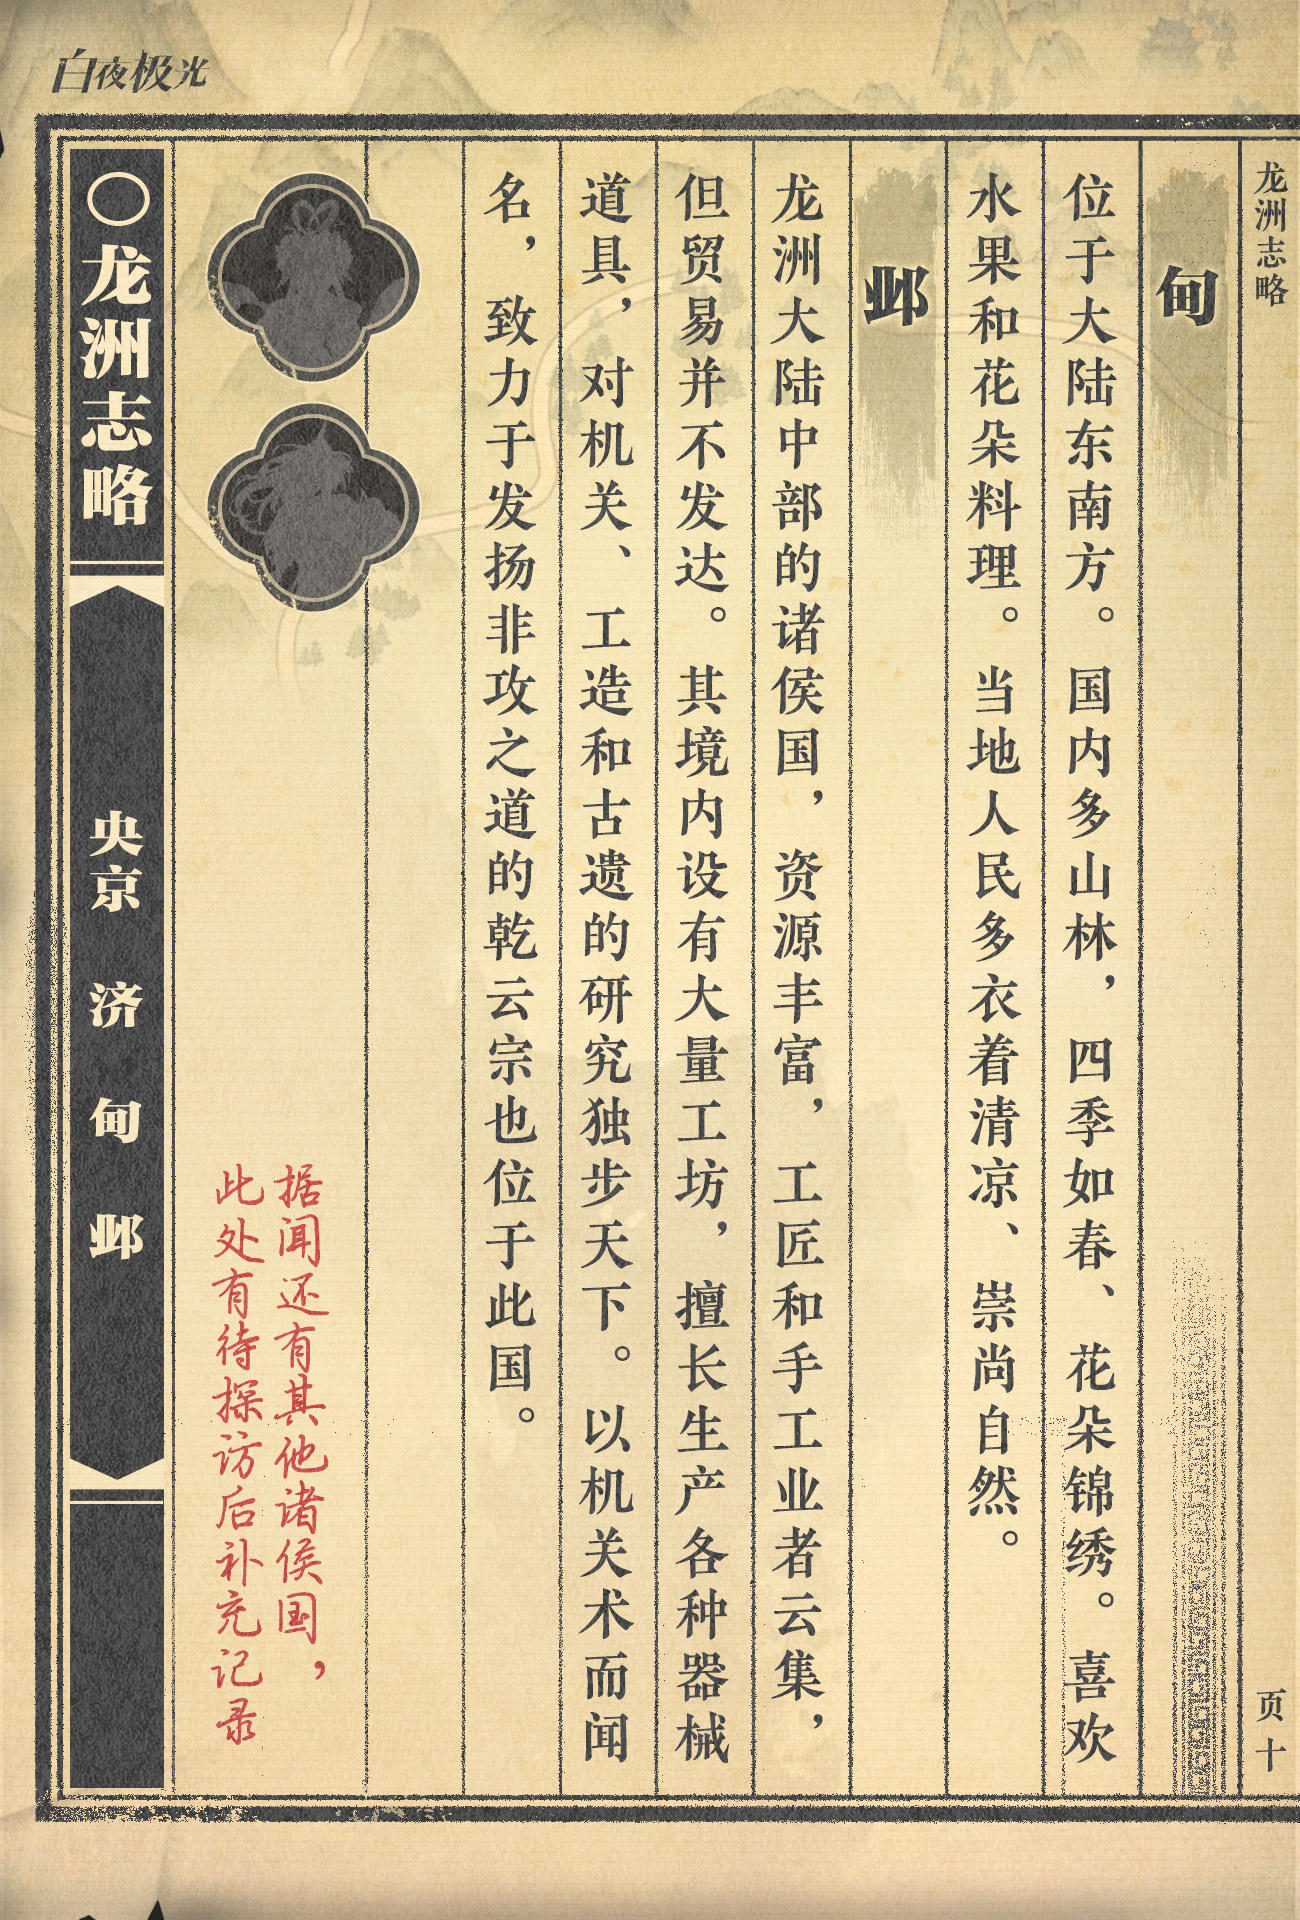 白夜极光
龙洲志略
页十
甸
位于大陆东南方。国内多山林，四季如春、花朵锦绣。喜欢
水果和花朵料理。当地人民多衣着清凉、崇尚自然。
邺
龙洲大陆中部的诸侯国，资源丰富，工匠和手工业者云集，
但贸易并不发达。其境内设有大量工坊，擅长生产各种器械
道具，对机关、工造和古遗的研究独步天下。以机关术而闻
名，致力于发扬非攻之道的乾云宗也位于此国。
据闻还有其他诸侯国，
此处有待探访后补充记录
〇龙洲志略
央京 济 甸 邺